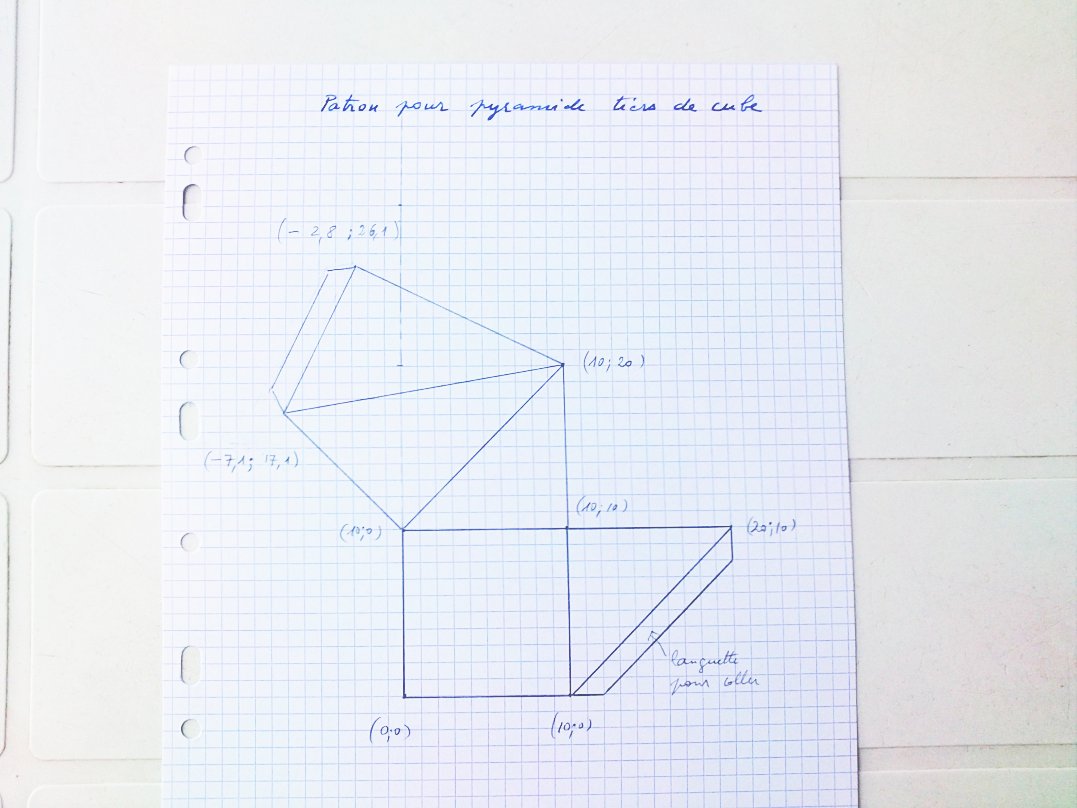 Patron pour pyramide tiers de cube
(- 2,8 ; 26,1)
(10; 20)
(-7,1; 17,1)
(10; 10)
(10;0)
(20;10)
languette
pour coller
(0;0)
(10;0)